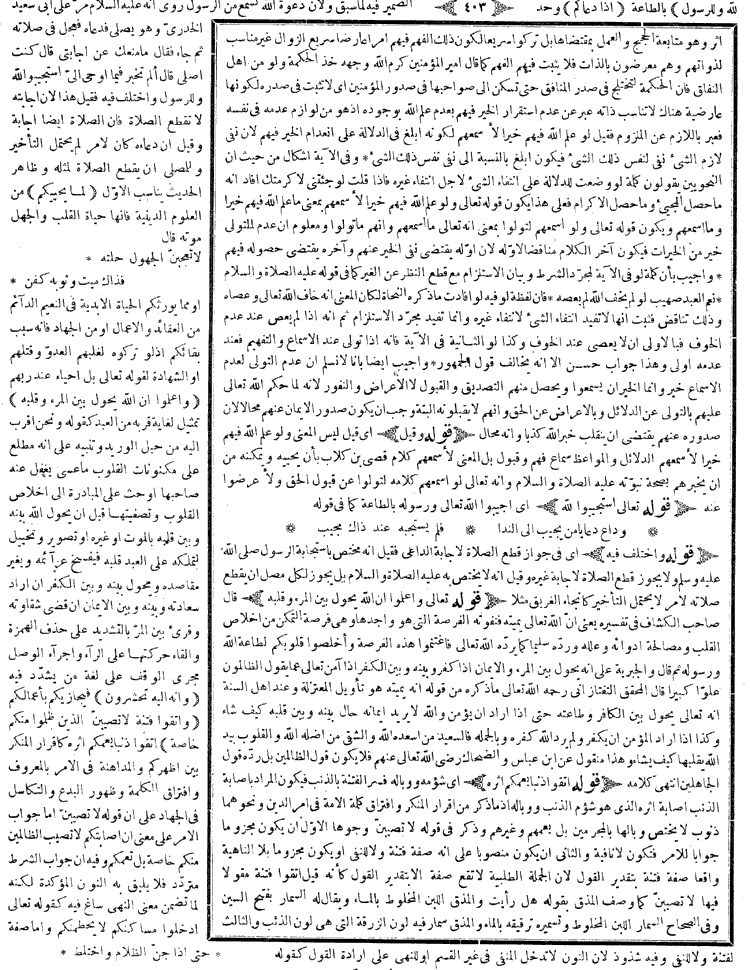 لله وللرسول ) بالطاعة ( اذا دعاكم ) وحد ﴿ ٤٠٣ ﴾ الضمير فيه لما سبق ولان دعوة الله تسمع من الرسول روى انه عليه السلام مر على ابى سعيد
الخدرى وهو يصلى فدعاه فعجل فى صلاته
ثم جاء فقال مامنعك عن اجابتى قال كنت
اصلى قال ألم تخبر فيما اوحى الىّ استجيبوا لله
وللرسول واختلف فيه فقيل هذا لان اجابته
لا تقطع الصلاة فان الصلاة ايضا اجابة
وقيل ان دعاءه كان لامر لم يحتمل التأخير
وللمصلى ان يقطع الصلاة لمثله وظاهر
الحديث يناسب الاوّل ( لما يحييكم ) من
العلوم الدينية فانها حياة القلب والجهل
موته قال
لا تعجبنّ الجهول حلته *
فذاك ميت وثوبه كفن *
او مما يورثكم الحياة الابدية فى النعيم الدآئم
من العقائد والاعمال او من الجهاد فانه سبب
بقائكم اذلو تركوه لغلبهم العدوّ وقتلهم
او الشهادة لقوله تعالى بل احياء عند ربهم
( واعلموا ان الله يحول بين المرء وقلبه )
تمثيل لغاية قربه من العبد كقوله ونحن اقرب
اليه من حبل الوريد وتنبيه على انه مطلع
على مكنونات القلوب ماعسى يغفل عنه
صاحبها او حث على المبادرة الى اخلاص
القلوب وتصفيتها قبل ان يحول الله بينه
وبين قلبه بالموت او غيره او تصوير وتخييل
لتملكه على العبد قلبه فيفسخ عزآئمه ويغير
مقاصده ويحول بينه وبين الكفر ان اراد
سعادته وبينه وبين الايمان ان قضى شقاوته
وقرئ بين المرّ بالتشديد على حذف الهمزة
والقاء حركتها على الرآء واجرآء الوصل
مجرى الوقف على لغة من يشدّد فيه
( وانه اليه تحشرون ) فيجازيكم بأعمالكم
( واتقوا فتنة لاتصيبنّ الذين ظلموا منكم
خاصة ) اتقوا ذنبا يعمكم اثره كاقرار المنكر
بين اظهركم والمداهنة فى الامر بالمعروف
وافتراق الكلمة وظهور البدع والتكاسل
فى الجهاد على ان قوله لاتصيبنّ اما جواب
الامر على معنى ان اصابتكم لاتصيب الظالمين
منكم خاصة بل تعمكم وفيه ان جواب الشرط
متردّد فلا يليق به النون المؤكدة لكنه
لما تضمن معنى النهى ساغ فيه كقوله تعالى
ادخلوا مساكنكم لايحطمنكم واما صفة
لفتنة ولا للنفى وفيه شذوذ لان النون لاتدخل المنفى فى غير القسم او للنهى على ارادة القول كقوله * حتى اذا جنّ الظلام واختلط *
اثر وهو متابعة الحجيج والعمل بمقتضاها بل تركوا سريعا لكون ذلك الفهم فيهم امرا عارضا سريع الزوال غير مناسب
لذواتهم وهم معرضون بالذات فلا يثبت فيهم الفهم كما قال امير المؤمنين كرم الله وجهه خذ الحكمة ولو من اهل
النفاق فان الحكمة لتختلج فى صدر المنافق حتى تسكن الى صواحبها فى صدور المؤمنين اى لاتثبت فى صدره لكونها
عارضية هناك لاتناسب ذاته عبر عن عدم استقرار الخير فيهم بعدم علم الله بوجوده اذ هو من لوازم عدمه فى نفسه
فعبر باللازم عن الملزوم فقيل لو علم الله فيهم خيرا لا سمعهم لكونه ابلغ فى الدلالة على انعدام الخير فيهم لان نفى
لازم الشئ نفى لنفس ذلك الشئ فيكون ابلغ بالنسبة الى نفى نفس ذلك الشئ * وفى الآية اشكال من حيث ان
النحويين يقولون كلمة لو وضعت للدلالة على انتفاء الشئ لاجل انتفاء غيره فاذا قلت لو جئتنى لاكرمتك افاد انه
ماحصل المجيئ وماحصل الاكرام فعلى هذا يكون قوله تعالى ولو علم الله فيهم خيرا لا سمعهم بمعنى ماعلم الله فيهم خيرا
وما اسمعهم ويكون قوله تعالى ولو اسمعهم لتولوا بمعنى انه تعالى ما أسمعهم وانهم ماتولوا ومعلوم ان عدم التولى
خير من الخيرات فيكون آخر الكلام مناقضا لاوّله لان اوله يقتضى نفى الخير عنهم وآخره يقتضى حصوله فيهم
* واجيب بأن كلمة لو فى الآية لمجرّد الشرط وبيان الاستلزام مع قطع النظر عن الغير كما فى قوله عليه الصلاة والسلام
* نعم العبد صهيب لو لم يخف الله لم يعصه * فان لفظة لو فيه لو افادت ماذكره النحاة لكان المعنى انه خاف الله تعالى وعصاه
وذلك تناقض فثبت انها لاتفيد انتفاء الشئ لانتفاء غيره وانما تفيد مجرّد الاستلزام ثم انه اذا لم يعص عند عدم
الخوف فبالاولى ان لايعصى عند الخوف وكذا لو الثانية فى الآية فانه اذا تولى عند الاسماع والتفهيم فعند
عدمه اولى وهذا جواب حسن الا انه يخالف قول الجمهور * واجيب ايضا بانا لانسلم ان عدم التولى لعدم
الاسماع خير وانما الخير ان يسمعوا ويحصل منهم التصديق والقبول لا الأعراض والنفور لانه لما حكم الله تعالى
عليهم بالتولى عن الدلائل وبالاعراض عن الحق وانهم لايقبلونه البتة وجب ان يكون صدور الايمان عنهم محالا لان
صدوره عنهم يقتضى ان ينقلب خبر الله كذبا وانه محال ﴿ قوله وقيل ﴾ اى قيل ليس المعنى ولو علم الله فيهم
خيرا لأسمعهم الدلائل والمواعظ سماع فهم وقبول بل المعنى لأسمعهم كلام قصى بن كلاب بأن يحييه ويمكنه من
ان يخبرهم بصحة نبوّته عليه الصلاة والسلام وانه تعالى لو اسمعهم كلامه لتولوا عن قبول الحق ولا عرضوا
عنه ﴿ قوله تعالى استجيبوا لله ﴾ اى اجيبوا الله تعالى ورسوله بالطاعة كما فى قوله
* وداع دعا يامن يجيب الى الندا * فلم يستجبه عند ذاك مجيب *
﴿ قوله واختلف فيه ﴾ اى فى جواز قطع الصلاة لاجابة الداعى فقيل انه مختص باستجابة الرسول صلى الله
عليه وسلم ولايجوز قطع الصلاة لاجابة غيره وقيل انه لايختص به عليه الصلاة والسلام بل يجوز لكل مصل ان يقطع
صلاته لامر لايحتمل التأخير كانجاء الغريق مثلا ﴿ قوله تعالى واعلموا ان الله يحول بين المرء وقلبه ﴾ قال
صاحب الكشاف فى تفسيره يعنى انّ الله تعالى يميته فتفوته الفرصة التى هو واجدها وهى فرصة التمكن من اخلاص
القلب ومصالحة ادوائه وعلله وردّه سليما كما يردّه الله تعالى فاغتنموا هذه الفرصة وأخلصوا قلوبكم لطاعة الله
ورسوله ثم قال والجبرية على انه يحول بين المرء والايمان اذا كفر وبينه وبين الكفر اذا آمن تعالى عما يقول الظالمون
علوّا كبيرا قال المحقق التفتازانى رحمه الله تعالى ماذكره من قوله انه يميته هو تأويل المعتزلة وعند اهل السنة
انه تعالى يحول بين الكافر وطاعته حتى اذا اراد ان يؤمن والله لايريد ايمانه حال بينه وبين قلبه كيف شاء
وكذا اذا اراد المؤمن ان يكفر ولم يرد الله كفره وبالجملة فالسعيد من اسعده الله والشقى من اضله الله والقلوب بيد
الله يقلبها كيف يشاء وهذا منقول عن ابن عباس والضحاك رضى الله تعالى عنهم فلا يكون قول الظالمين بل ردّه قول
الجاهلين انتهى كلامه ﴿ قوله اتقوا ذنبا يعمكم اثره ﴾ اى شؤمه ووباله فسر الفتنة بالذنب فيكون المراد باصابة
الذنب اصابة اثره الذى هو شؤم الذنب ووباله اذ ماذكر من اقرار المنكر وافتراق كلمة الامة فى امر الدين ونحوهما
ذنوب لايختص وبالها بالمجرمين بل يعمهم وغيرهم وذكر فى قوله لاتصيبنّ وجوها الاوّل ان يكون مجزوما
جوابا للامر فتكون لا نافية والثانى ان يكون منصوبا على انه صفة فتنة ولا للنفى او يكون مجزوما بلا الناهية
واقعا صفة فتنة بتقدير القول لان الجملة الطلبية لاتقع صفة الابتقدير القول كأنه قيل اتقوا فتنة مقولا
فيها لاتصيبنّ كما وصف المذق بقوله هل رأيت والمذق اللبن المخلوط بالماء ويقال له السمار بفتح السين
وفى الصحاح السمار اللبن المخلوط وتسميره ترقيقه بالماء والمذق سمار فيه لون الزرقة التى هى لون الذئب والثالث